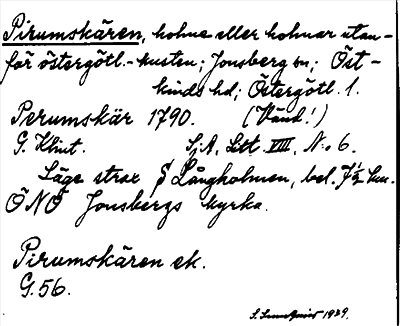 Pirumskären, holme eller holmar utan-
för östergötl.-kusten; Jonsberg sn; Öst-
kinds hd; Östergötl. l.
Perumskär 1790. (Vänd!)
G. Klint. Sj.A, Litt VIII, No 6.
Läge strax S Långholmen, bel. 7½ km.
ÖNÖ Jonsbergs kyrka.
Pirumskären ek.
G.56.
S. 1929.